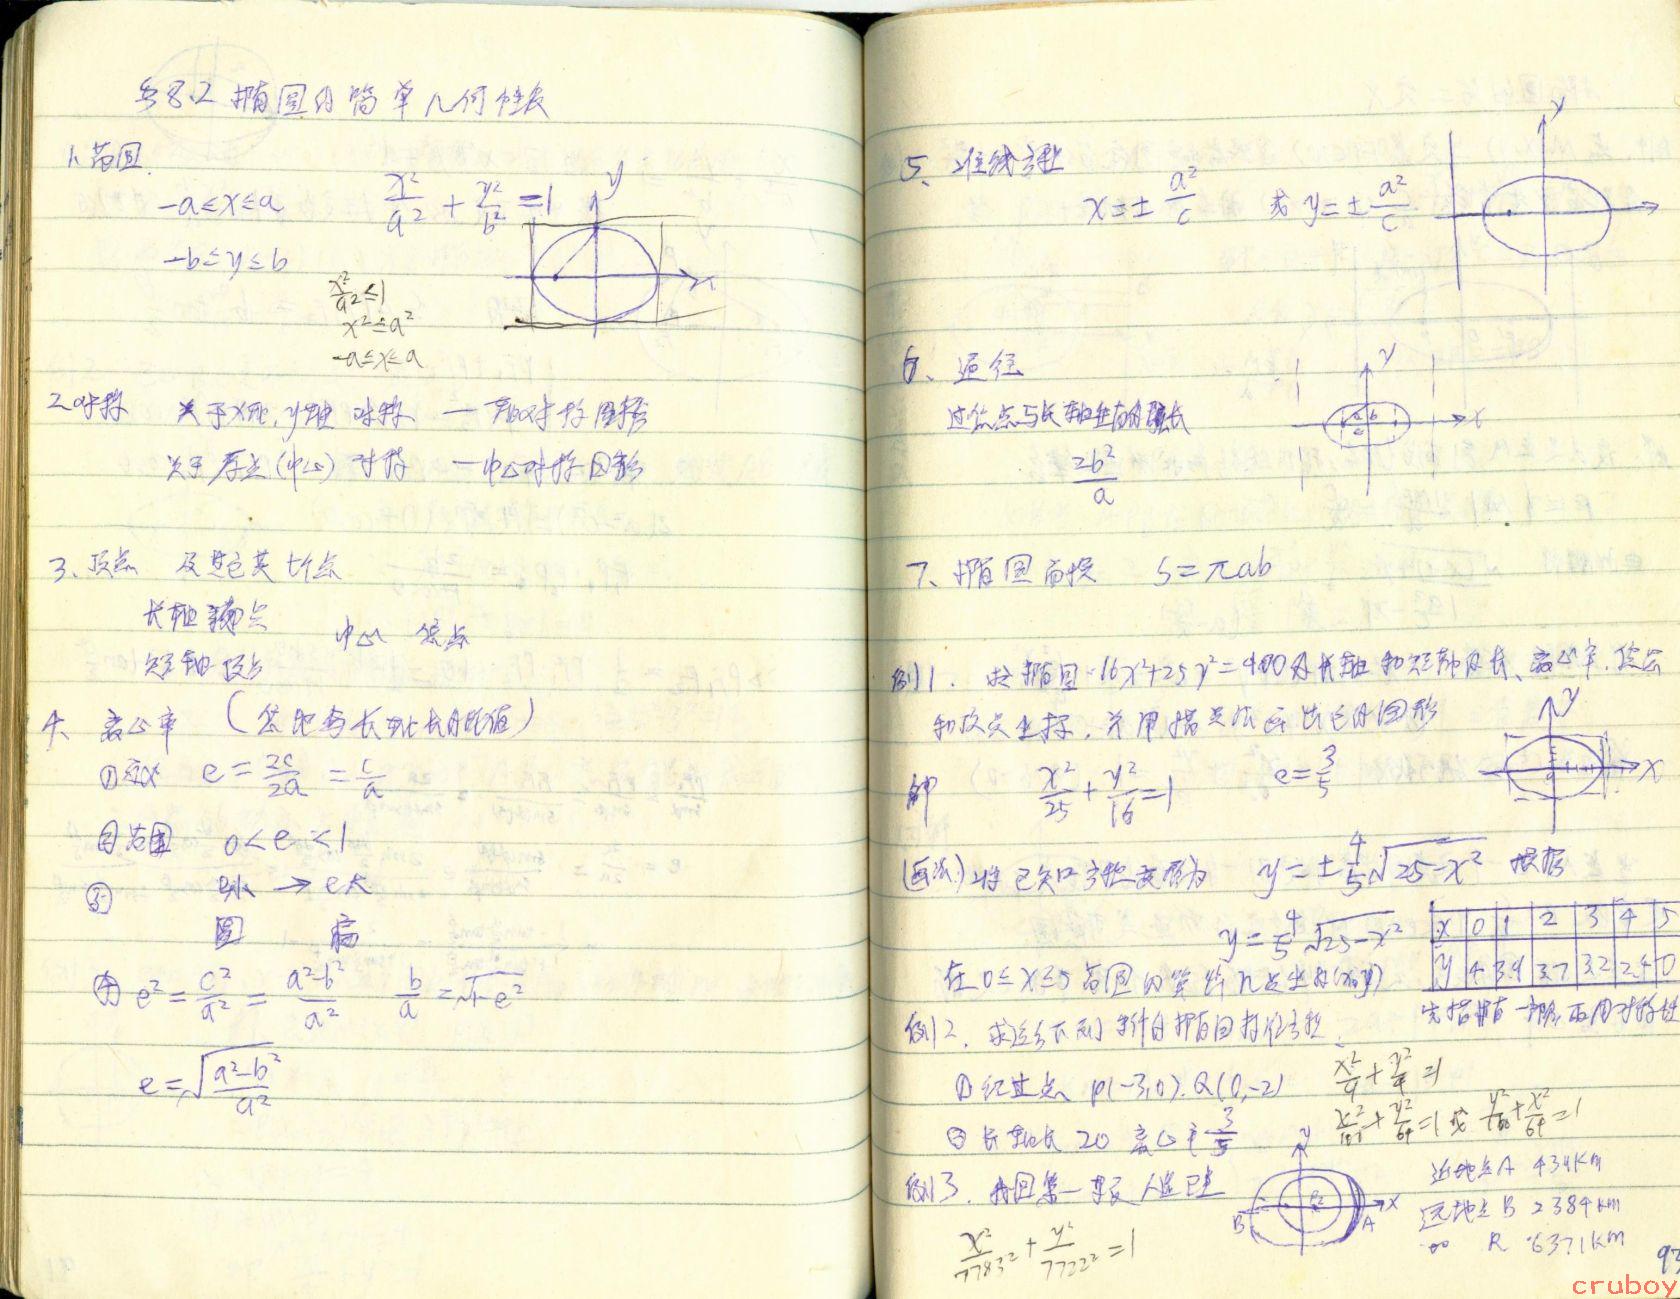 §8.2 椭圆的简单几何性质
1.范围
-a≤x≤a
x²/a² + y²/b² = 1
y
-b≤y≤b
x
x²/a²≤1
x²≤a²
-a≤x≤a
2.对称 关于x轴,y轴对称 — 轴对称图形
关于原点(中心)对称 — 中心对称图形
3、顶点 及其它共七个点
长轴端点
中心 焦点
短轴顶点
4、离心率 (焦距与长轴长的比值)
①定义 e = 2c/2a = c/a
②范围 0<e<1
③ e小 → e大
圆 扁
④ e² = c²/a² = (a²-b²)/a² b/a = √(1-e²)
e = √((a²-b²)/a²)
5、准线方程
x=± a²/c 或 y=± a²/c
y
6、通径
过焦点与长轴垂直的弦长
2b²/a
y
x
7、椭圆面积 S=πab
例1. 求椭圆 16x²+25y²=400的长轴和短轴的长、离心率、焦点
和顶点坐标,并用描点法画出它的图形
解 x²/25 + y²/16 = 1 e=3/5
y
x
(画法)将已知方程变形为 y=± 4/5 √(25-x²) 根据
y= 4/5 √(25-x²)
x 0 1 2 3 4 5
y 4 3.9 3.7 3.2 2.4 0
在0≤x≤5范围内算出几个点坐标(x,y)
先描椭圆一部分,再用对称性
例2. 求适合下列条件的椭圆标准方程
①经过点 P(-3,0).Q(0,-2) x²/9 + y²/4 = 1
②长轴长 20 离心率3/5 x²/100 + y²/64 = 1 或 y²/100 + x²/64 = 1
例3. 我国第一颗人造卫星
y
x
B
A
近地点A 439km
远地点B 2384km
R 6371km
x²/7783² + y²/7722² = 1
93
cruboy